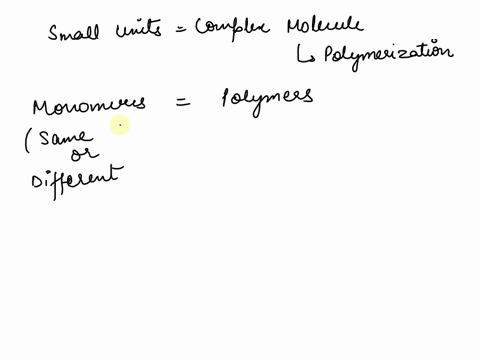 Small Units = Complex Molecule
↳ Polymerization
Monomers = Polymers
(Same
or
Different